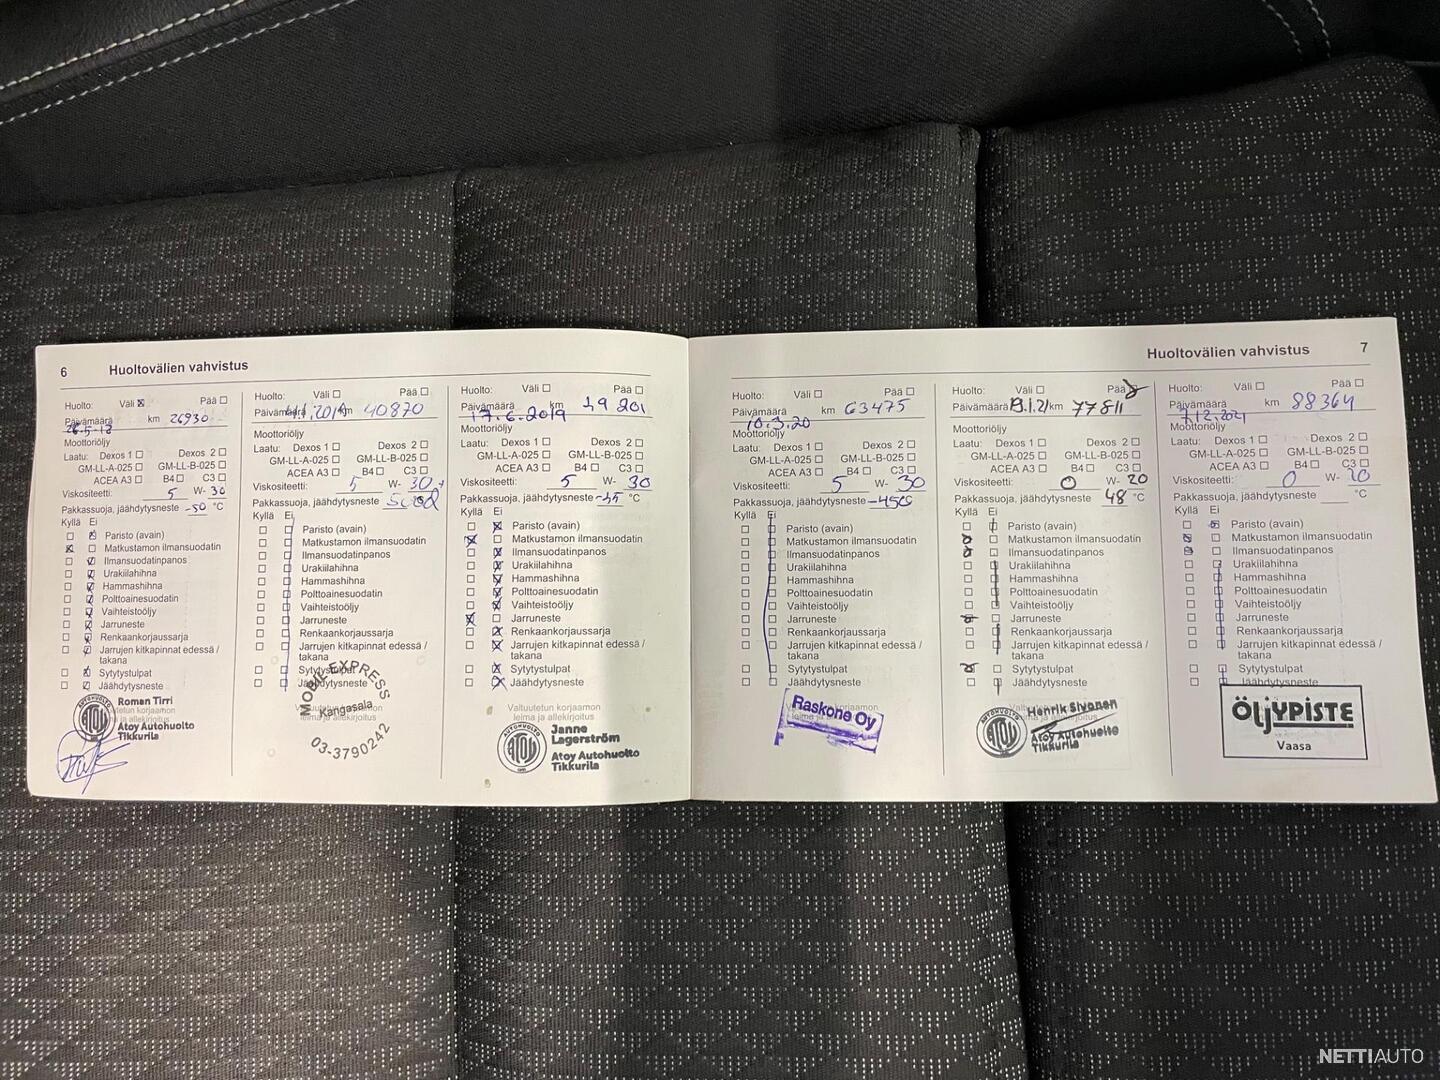 6 Huoltovälien vahvistus
Huolto: Väli Pää
Päivämäärä km 26930
26.5-18
Moottoriöljy
Laatu: Dexos 1 Dexos 2
GM-LL-A-025 GM-LL-B-025
ACEA A3 B4 C3
Viskositeetti: 5 W- 30
Pakkassuoja, jäähdytysneste -50 °C
Kyllä Ei
Paristo (avain)
Matkustamon ilmansuodatin
Ilmansuodatinpanos
Urakiilahihna
Hammashihna
Polttoainesuodatin
Vaihteistoöljy
Jarruneste
Renkaankorjaussarja
Jarrujen kitkapinnat edessä /
takana
Sytytystulpat
Jäähdytysneste
Roman Tirri
Atoy Autohuolto
Tikkurila
AUTOHUOLTO
ATOY
Huolto: Väli Pää
Päivämäärä km 40870
Moottoriöljy
Laatu: Dexos 1 Dexos 2
GM-LL-A-025 GM-LL-B-025
ACEA A3 B4 C3
Viskositeetti: 5 W- 30
Pakkassuoja, jäähdytysneste
Kyllä Ei
Paristo (avain)
Matkustamon ilmansuodatin
Ilmansuodatinpanos
Urakiilahihna
Hammashihna
Polttoainesuodatin
Vaihteistoöljy
Jarruneste
Renkaankorjaussarja
Jarrujen kitkapinnat edessä /
takana
Sytytystulpat
Jäähdytysneste
EXPRESS
Kangasala
03-3790242
Huolto: Väli Pää
Päivämäärä km
17.6.2019
Moottoriöljy
Laatu: Dexos 1 Dexos 2
GM-LL-A-025 GM-LL-B-025
ACEA A3 B4 C3
Viskositeetti: 5 W- 30
Pakkassuoja, jäähdytysneste °C
Kyllä Ei
Paristo (avain)
Matkustamon ilmansuodatin
Ilmansuodatinpanos
Urakiilahihna
Hammashihna
Polttoainesuodatin
Vaihteistoöljy
Jarruneste
Renkaankorjaussarja
Jarrujen kitkapinnat edessä /
takana
Sytytystulpat
Jäähdytysneste
Valtuutetun korjaamon
leima ja allekirjoitus
AUTOHUOLTO
ATOY
Janne
Lagerström
Atoy Autohuolto
Tikkurila
Huoltovälien vahvistus 7
Huolto: Väli Pää
Päivämäärä km 63475
10.3.20
Moottoriöljy
Laatu: Dexos 1 Dexos 2
GM-LL-A-025 GM-LL-B-025
ACEA A3 B4 C3
Viskositeetti: 5 W- 30
Pakkassuoja, jäähdytysneste -45°C
Kyllä Ei
Paristo (avain)
Matkustamon ilmansuodatin
Ilmansuodatinpanos
Urakiilahihna
Hammashihna
Polttoainesuodatin
Vaihteistoöljy
Jarruneste
Renkaankorjaussarja
Jarrujen kitkapinnat edessä /
takana
Sytytystulpat
Jäähdytysneste
Raskone Oy
Huolto: Väli Pää
Päivämäärä 19.1.21 km 77811
Moottoriöljy
Laatu: Dexos 1 Dexos 2
GM-LL-A-025 GM-LL-B-025
ACEA A3 B4 C3
Viskositeetti: 0 W- 20
Pakkassuoja, jäähdytysneste 48 °C
Kyllä Ei
Paristo (avain)
Matkustamon ilmansuodatin
Ilmansuodatinpanos
Urakiilahihna
Hammashihna
Polttoainesuodatin
Vaihteistoöljy
Jarruneste
Renkaankorjaussarja
Jarrujen kitkapinnat edessä /
takana
Sytytystulpat
Jäähdytysneste
AUTOHUOLTO
ATOY
Henrik Sivonen
Atoy Autohuolto
Tikkurila
Huolto: Väli Pää
Päivämäärä km 88364
7.12.2021
Moottoriöljy
Laatu: Dexos 1 Dexos 2
GM-LL-A-025 GM-LL-B-025
ACEA A3 B4 C3
Viskositeetti: 0 W-
Pakkassuoja, jäähdytysneste °C
Kyllä Ei
Paristo (avain)
Matkustamon ilmansuodatin
Ilmansuodatinpanos
Urakiilahihna
Hammashihna
Polttoainesuodatin
Vaihteistoöljy
Jarruneste
Renkaankorjaussarja
Jarrujen kitkapinnat edessä /
takana
Sytytystulpat
Jäähdytysneste
ÖLJYPISTE
Vaasa
NETTIAUTO